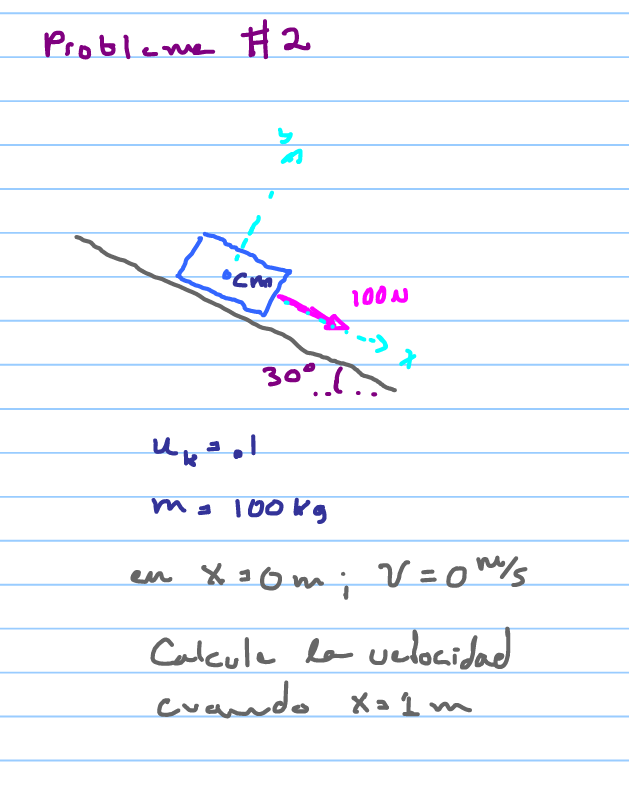 Problema #2
y
cm
100N
x
30°
uk = .1
m = 100 kg
en x = 0 m ; V = 0 m/s
Calcule la velocidad
cuando x = 1 m